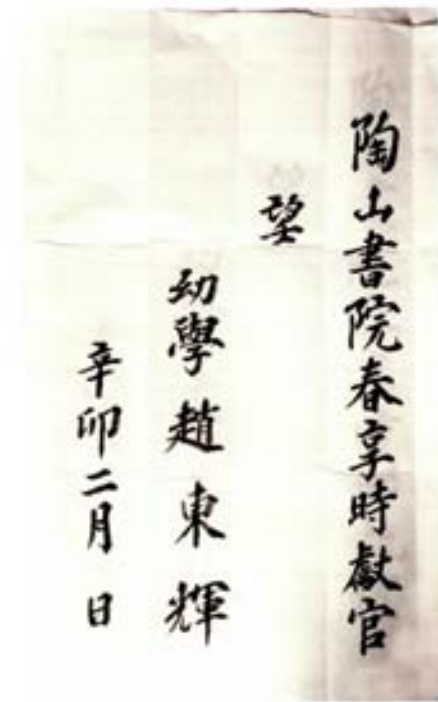 陶山書院春享時獻官
望
幼學趙東輝
辛卯二月 日